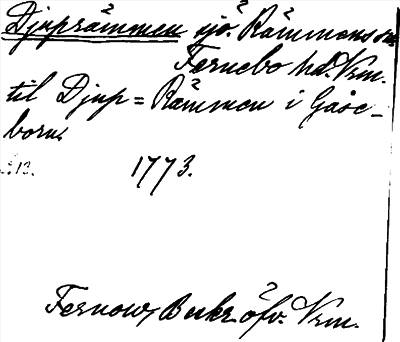 Djuprämmen sjö. Rämmens sn
Fernebo hd. Vrm.
til Djup=Rämmen i Gåse-
born
1773.
Fernow, Beskr. öfv. Vrm.